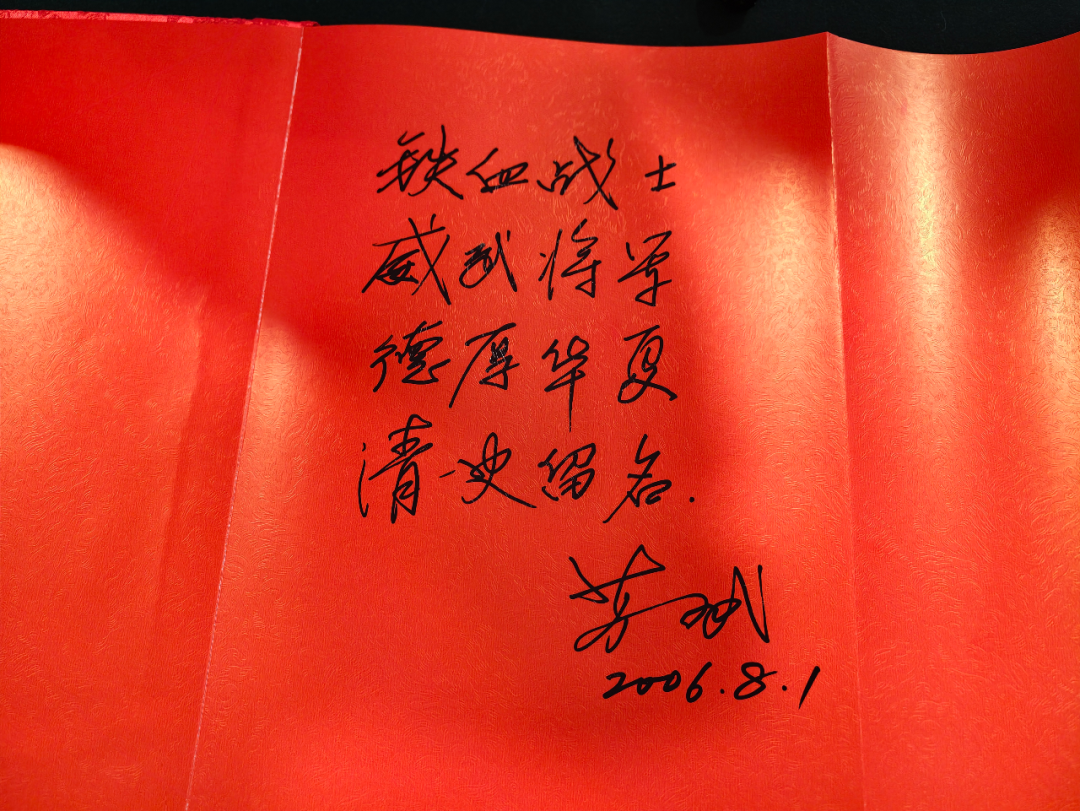 铁血战士
威武将军
德厚华夏
清史留名.
苏斌
2006.8.1